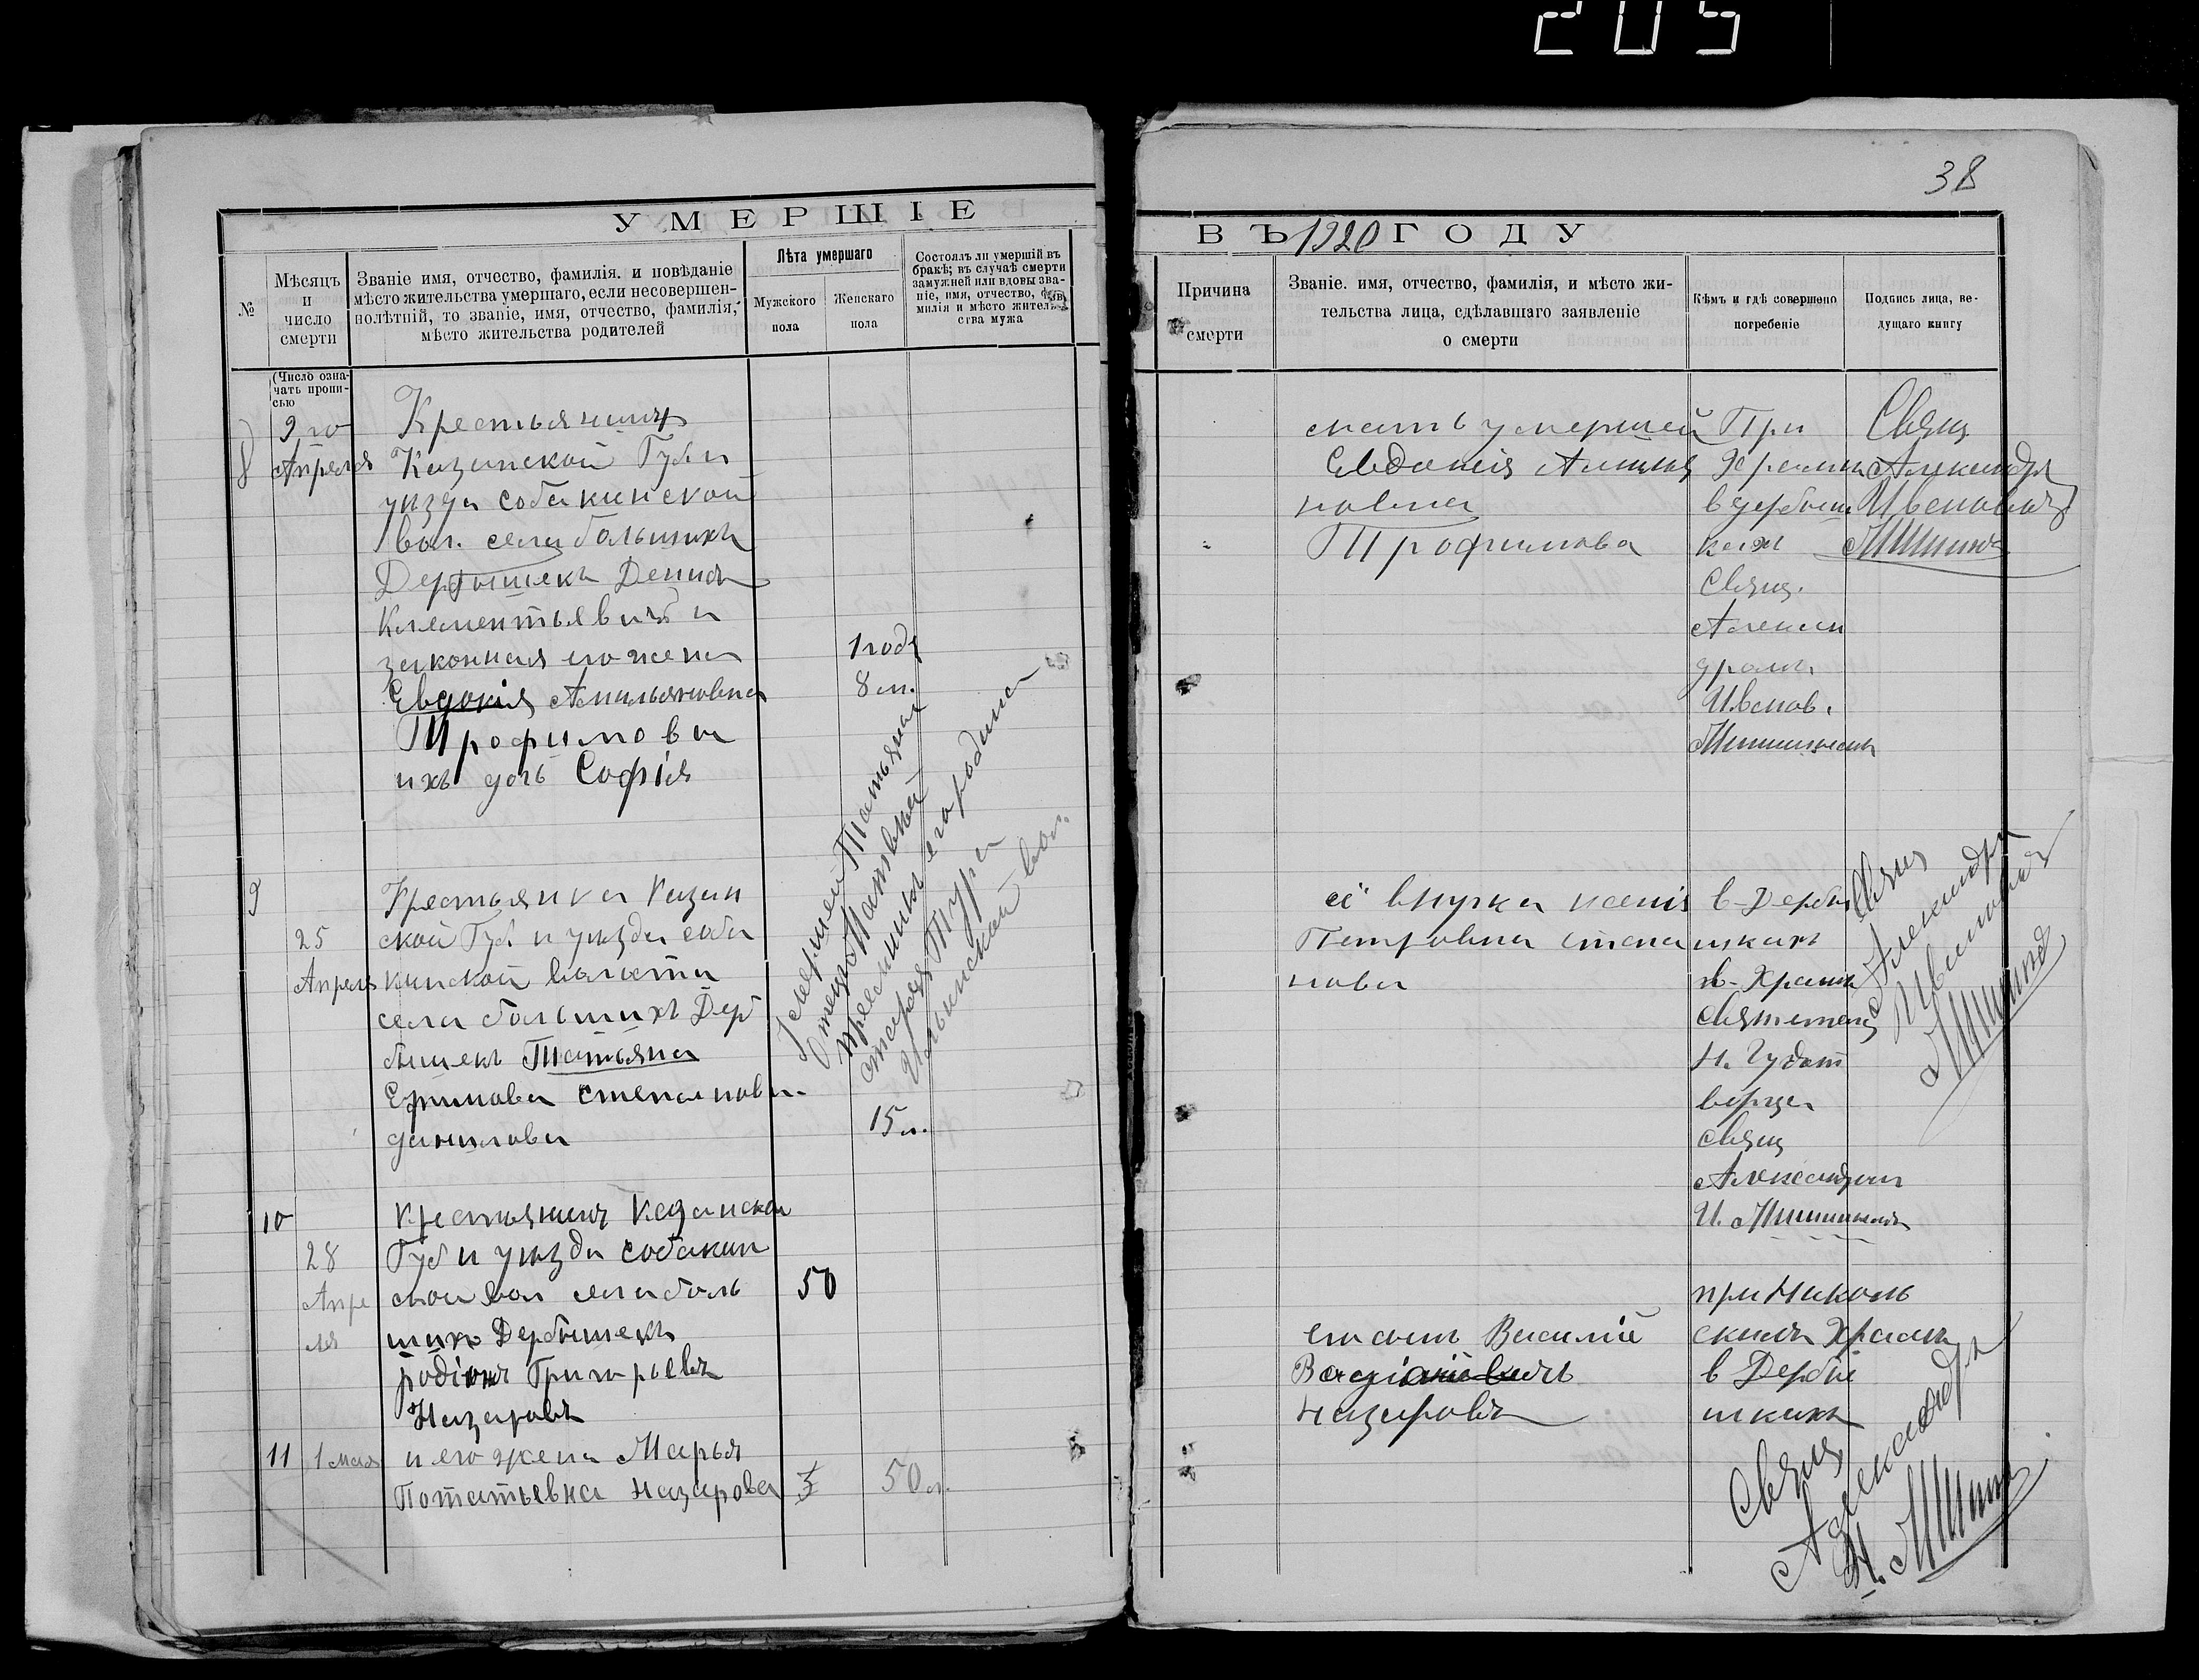 205
38
УМЕРШІЕ
ВЪ 1920 ГОДУ
№
Мѣсяцъ и число смерти
Званіе имя, отчество, фамилія. и повѣданіе
мѣсто жительства умершаго, если несовершен-
нолѣтній, то званіе, имя, отчество, фамилія,
мѣсто жительства родителей
Лѣта умершаго
Мужского пола
Женскаго пола
Состоялъ ли умершій въ
бракѣ; въ случаѣ смерти
замужней или вдовы зва-
ніе, имя, отчество, фа-
милія и мѣсто житель-
ства мужа
Причина смерти
Званіе. имя, отчество, фамилія, и мѣсто жи-
тельства лица, сдѣлавшаго заявленіе
о смерти
Кѣмъ и гдѣ совершено
погребеніе
Подпись лица, ве-
дущаго книгу
(Число озна-
чать пропи-
сью
8
9 го
Апреля
Крестьянинъ
Казанской Губ и
уезда собакинской
вол. села больших
Дербышекъ Денис
Клементьевичъ и
законная его жена
Евдокія Амильяновна
Трофимова
ихъ дочь Софія
1 годъ
8 м.
мать умершей
Евдокія Амилья
новна
Трофимова
При
Храмѣ
в дербыш
ках
Свящ.
Алексан
дромъ
Иванов.
Мишинымъ
Свящ
Александръ
Ивановичъ
Мишинъ
9
25
Апреля
Крестьянка Казан
ской Губ и уезда соба
кинской волости
села большихъ Дер
бышекъ Татьяна
Ефимова Степанова
данилова
15 л.
умершей Татьяны
Отецъ
его родина
старая Тура
Ильинской вол.
её внучка ксенія
Петровна степа
нова
в Дербы
шкахъ
в Храмѣ
Святителя
Н. Чудот
ворца
свящ
Александром
И. Мишинымъ
Свящ
Александръ
Ивановичъ
Мишинъ
10
28
Апре
ля
Крестьянинъ Казанской
Губ и уезда собакин
ской вол села боль
шихъ Дербышекъ
родіонъ Григорьевъ
Назаровъ
50
его сынъ Василій
Назаровъ
при Николь
скимъ Храмѣ
в Дербы
шкахъ
11
1 мая
и его жена Марья
Потапьевна Назарова
50 л.
Свящ
Александръ
И. Мишинъ